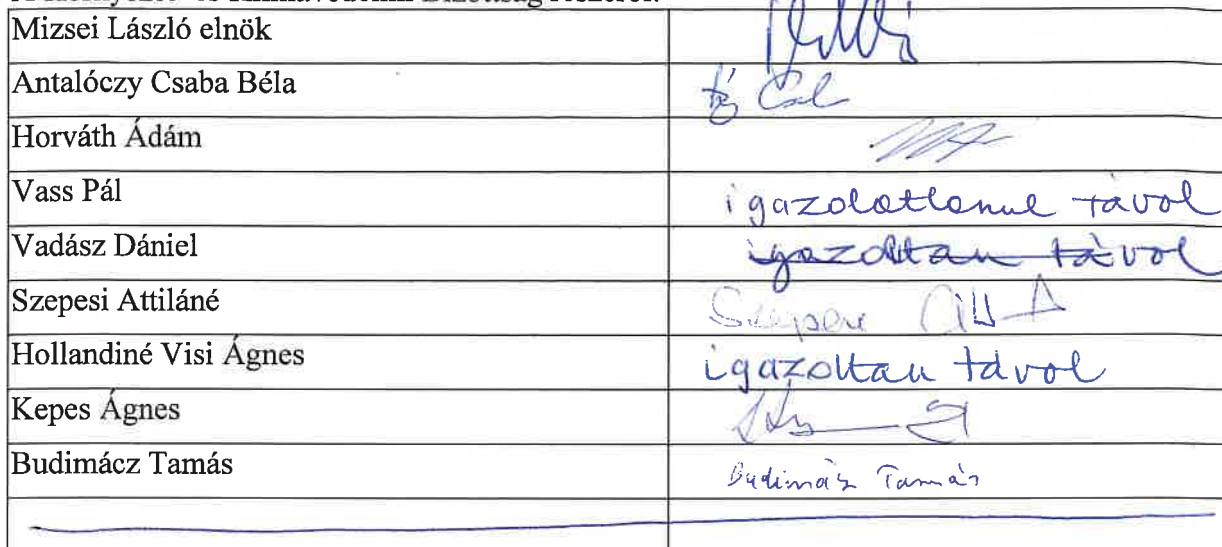 Mizsei László elnök
Antalóczy Csaba Béla
Horváth Ádám
Vass Pál igazolatlanul távol
Vadász Dániel igazoltan távol
Szepesi Attiláné
Hollandiné Visi Ágnes igazoltan távol
Kepes Ágnes
Budimácz Tamás Budimácz Tamás